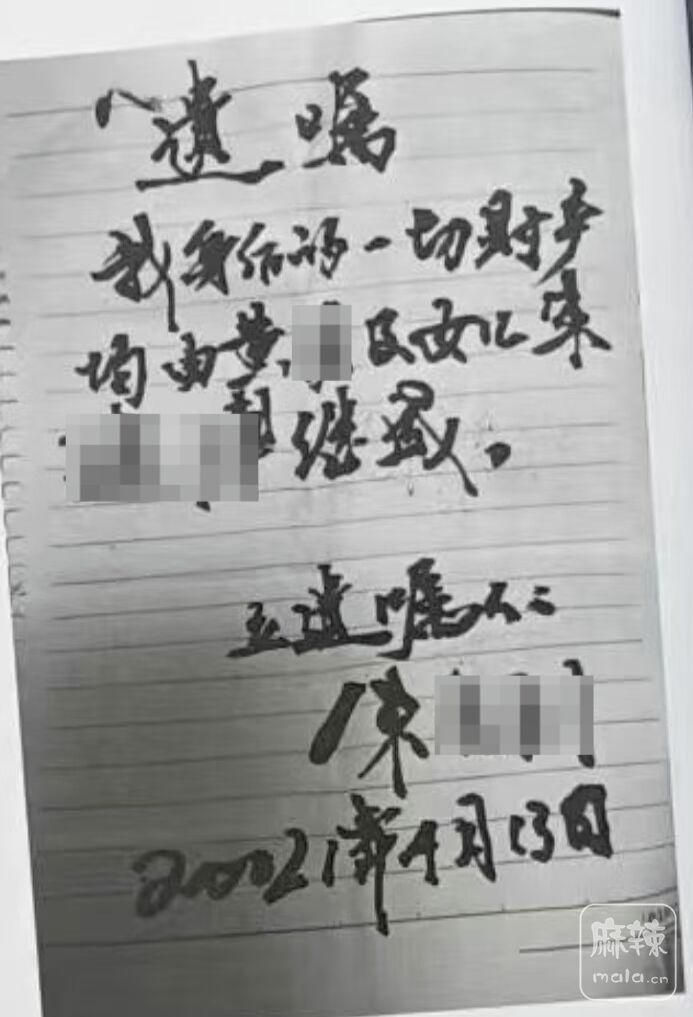 遗嘱
我身后的一切财产
均由黄及女儿
继承。
立遗嘱人:
陈
20021年4月13日
麻辣
mala.cn